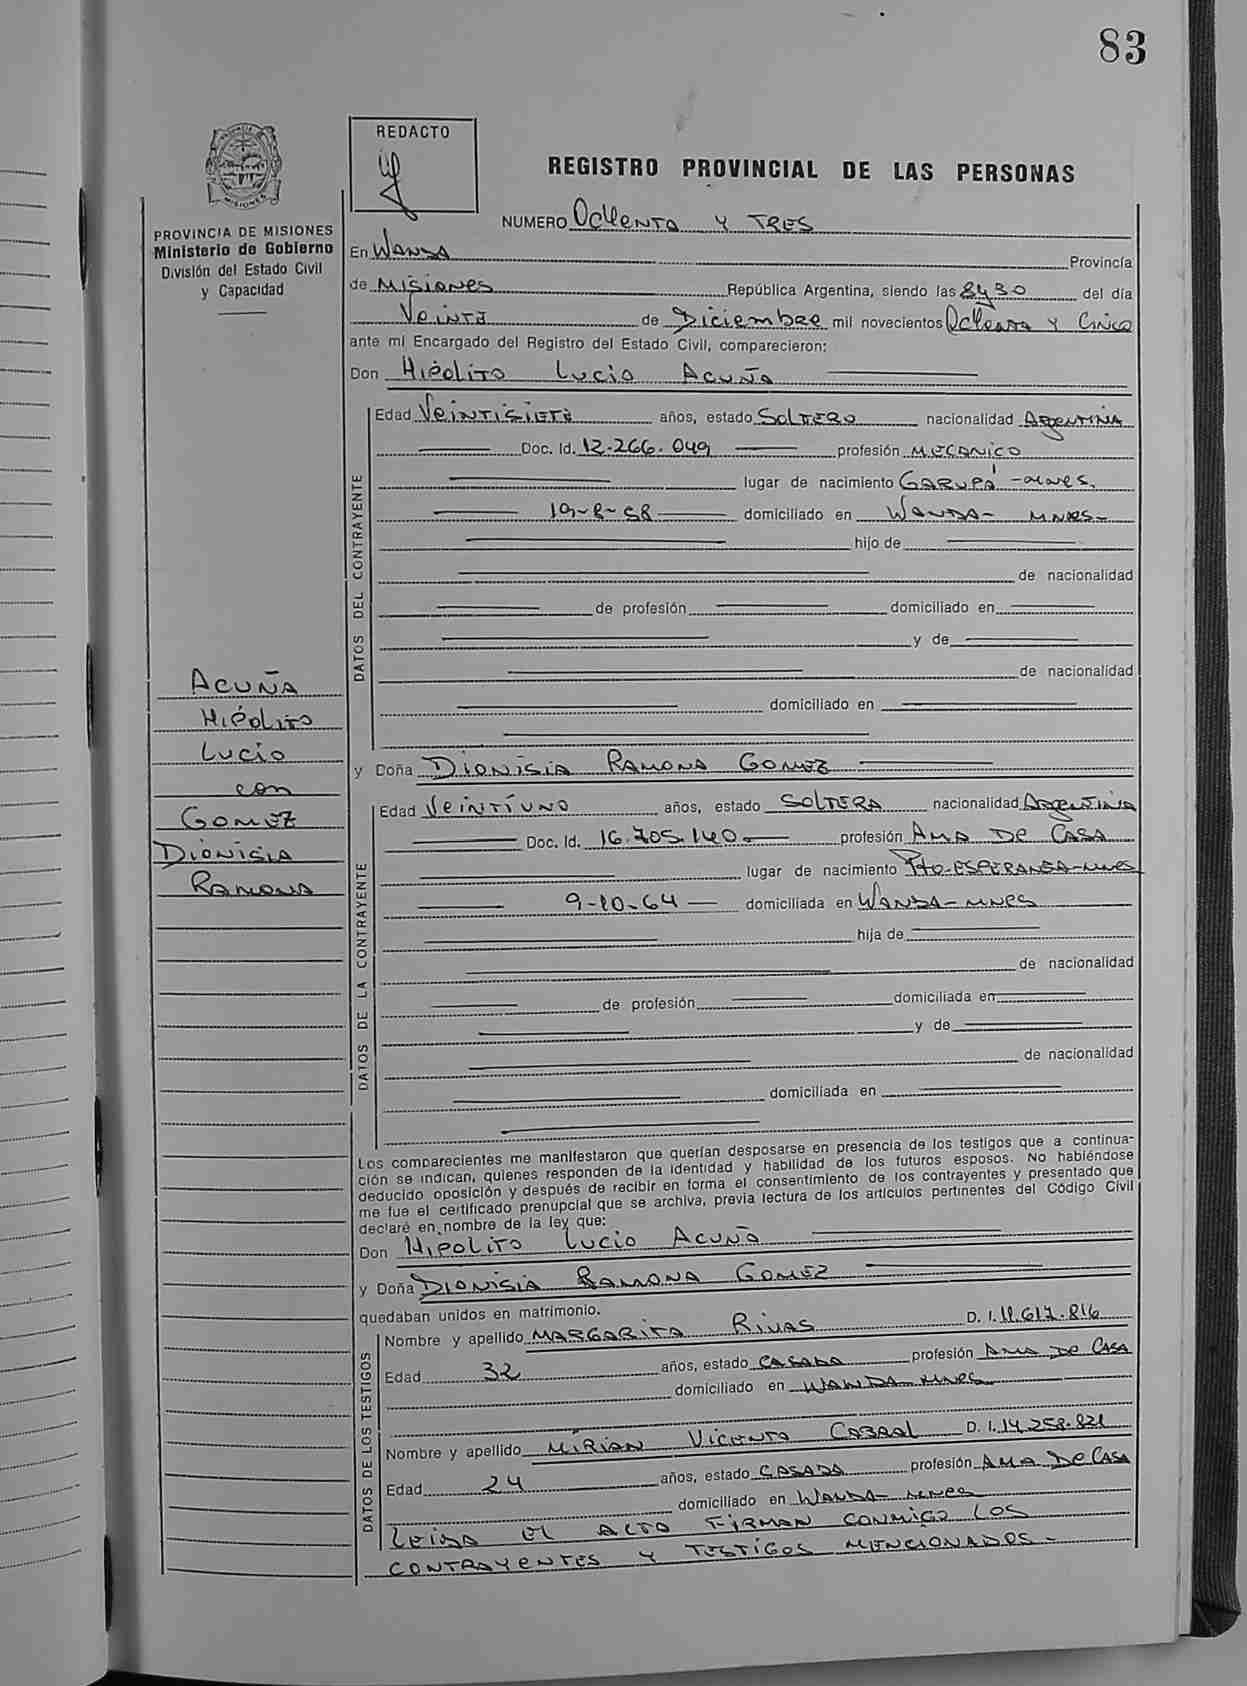 83
PROVINCIA DE MISIONES
Ministerio de Gobierno
División del Estado Civil
y Capacidad
REDACTO
REGISTRO PROVINCIAL DE LAS PERSONAS
NUMERO OcHenta y TRES
En WANDA Provincia
de MISIONES República Argentina, siendo las 8y30 del día
Veinte de Diciembre mil novecientos OcHenta y Cinco
ante mi Encargado del Registro del Estado Civil, comparecieron:
Don Hipólito Lucio Acuña
DATOS DEL CONTRAYENTE
Edad Veintisiete años, estado Soltero nacionalidad Argentina
Doc. Id. 12.266.049 profesión Mecanico
lugar de nacimiento Garupá - Mnes.
19-8-58 domiciliado en Wanda - Mnes-
hijo de
de nacionalidad
de profesión domiciliado en
y de
de nacionalidad
domiciliado en
Acuña
Hipólito
Lucio
con
Gomez
Dionisia
Ramona
y Doña Dionisia Ramona Gomez
DATOS DE LA CONTRAYENTE
Edad Veintíuno años, estado Soltera nacionalidad Argentina
Doc. Id. 16.705.140 profesión Ama De Casa
lugar de nacimiento Pto-Esperansa-Mnes
9-10-64 domiciliada en Wanda-Mnes
hija de
de nacionalidad
de profesión domiciliada en
y de
de nacionalidad
domiciliada en
Los comparecientes me manifestaron que querían desposarse en presencia de los testigos que a continua-
ción se indican, quienes responden de la identidad y habilidad de los futuros esposos. No habiéndose
deducido oposición y después de recibir en forma el consentimiento de los contrayentes y presentado que
me fue el certificado prenupcial que se archiva, previa lectura de los artículos pertinentes del Código Civil
declaré en nombre de la ley que:
Don Hipolito Lucio Acuña
y Doña Dionisia Ramona Gomez
quedaban unidos en matrimonio.
DATOS DE LOS TESTIGOS
Nombre y apellido Margarita Rivas D. I. 11.617.816
Edad 32 años, estado Casada profesión Ama De Casa
domiciliado en Wanda-Mnes
Nombre y apellido Mirian Vicenta Cabral D. I. 14.258.821
Edad 24 años, estado Casada profesión Ama De Casa
domiciliado en Wanda-Mnes
Leida el acto firman conmigo los
contrayentes y testigos mencionados.-